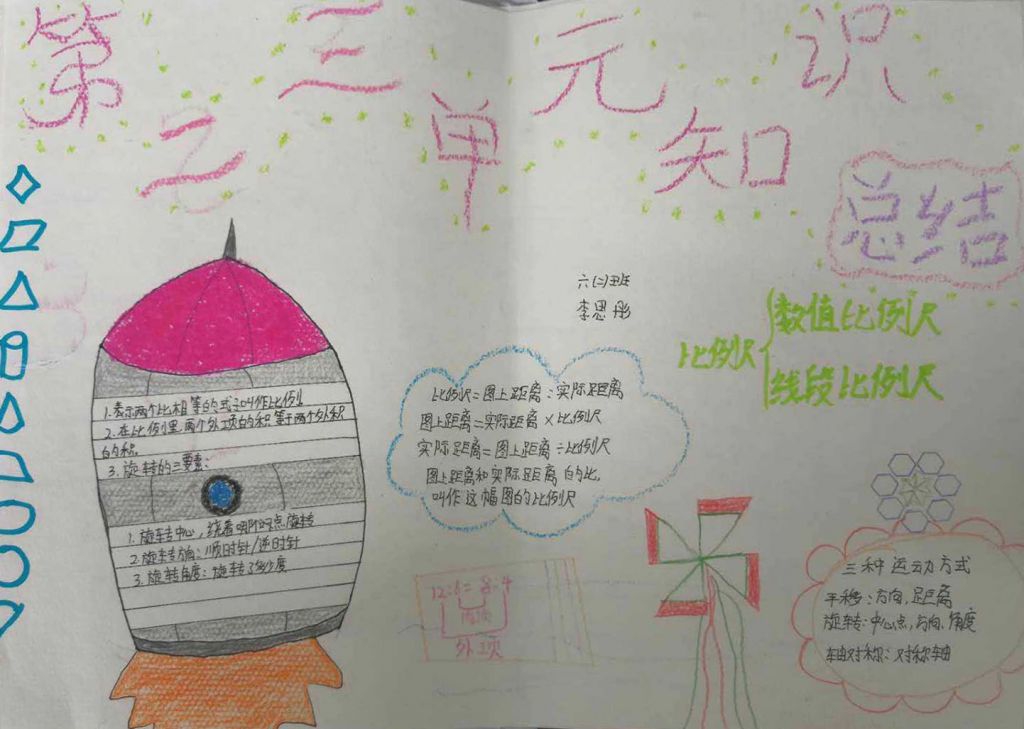 第二三单元知识
总结
六(二)班
李思彤
比例尺
数值比例尺
线段比例尺
1.表示两个比相等的式子叫作比例
2.在比例里,两个外项的积等于两个外积
的积。
3.旋转的三要素:
1.旋转中心,绕着哪个点旋转
2.旋转方向:顺时针/逆时针
3.旋转角度:旋转了多少度
比例尺=图上距离:实际距离
图上距离=实际距离×比例尺
实际距离=图上距离÷比例尺
图上距离和实际距离的比,
叫作这幅图的比例尺
12:6=8:4
内项
外项
三种运动方式
平移:方向,距离
旋转:中心点,方向、角度
轴对称:对称轴